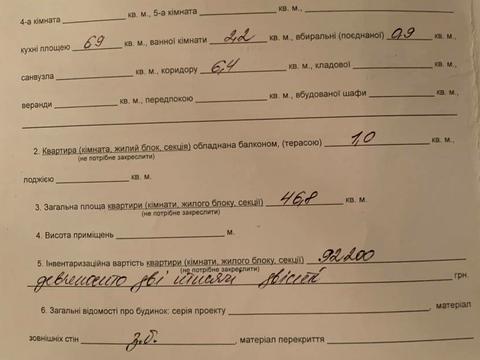 4-а кімната кв. м., 5-а кімната кв. м.,
кухні площею 69 кв. м., ванної кімнати 2,2 кв. м., вбиральні (поєднаної) 0,9 кв. м.,
санвузла кв. м., коридору 6,4 кв. м., кладової кв. м.,
веранди кв. м., передпокою кв. м., вбудованої шафи кв. м.,
2. Квартира (кімната, жилий блок, секція) обладнана балконом, (терасою) 1,0 кв. м.,
(не потрібне закреслити)
лоджією кв. м.
3. Загальна площа квартири (кімнати, жилого блоку, секції) 46,8 кв. м.
(не потрібне закреслити)
4. Висота приміщень м.
5. Інвентаризаційна вартість квартири (кімнати, жилого блоку, секції) 92200
(не потрібне закреслити)
дев'яносто дві тисячі двісті грн.
6. Загальні відомості про будинок: серія проекту , матеріал
зовнішніх стін з.б. , матеріал перекриття